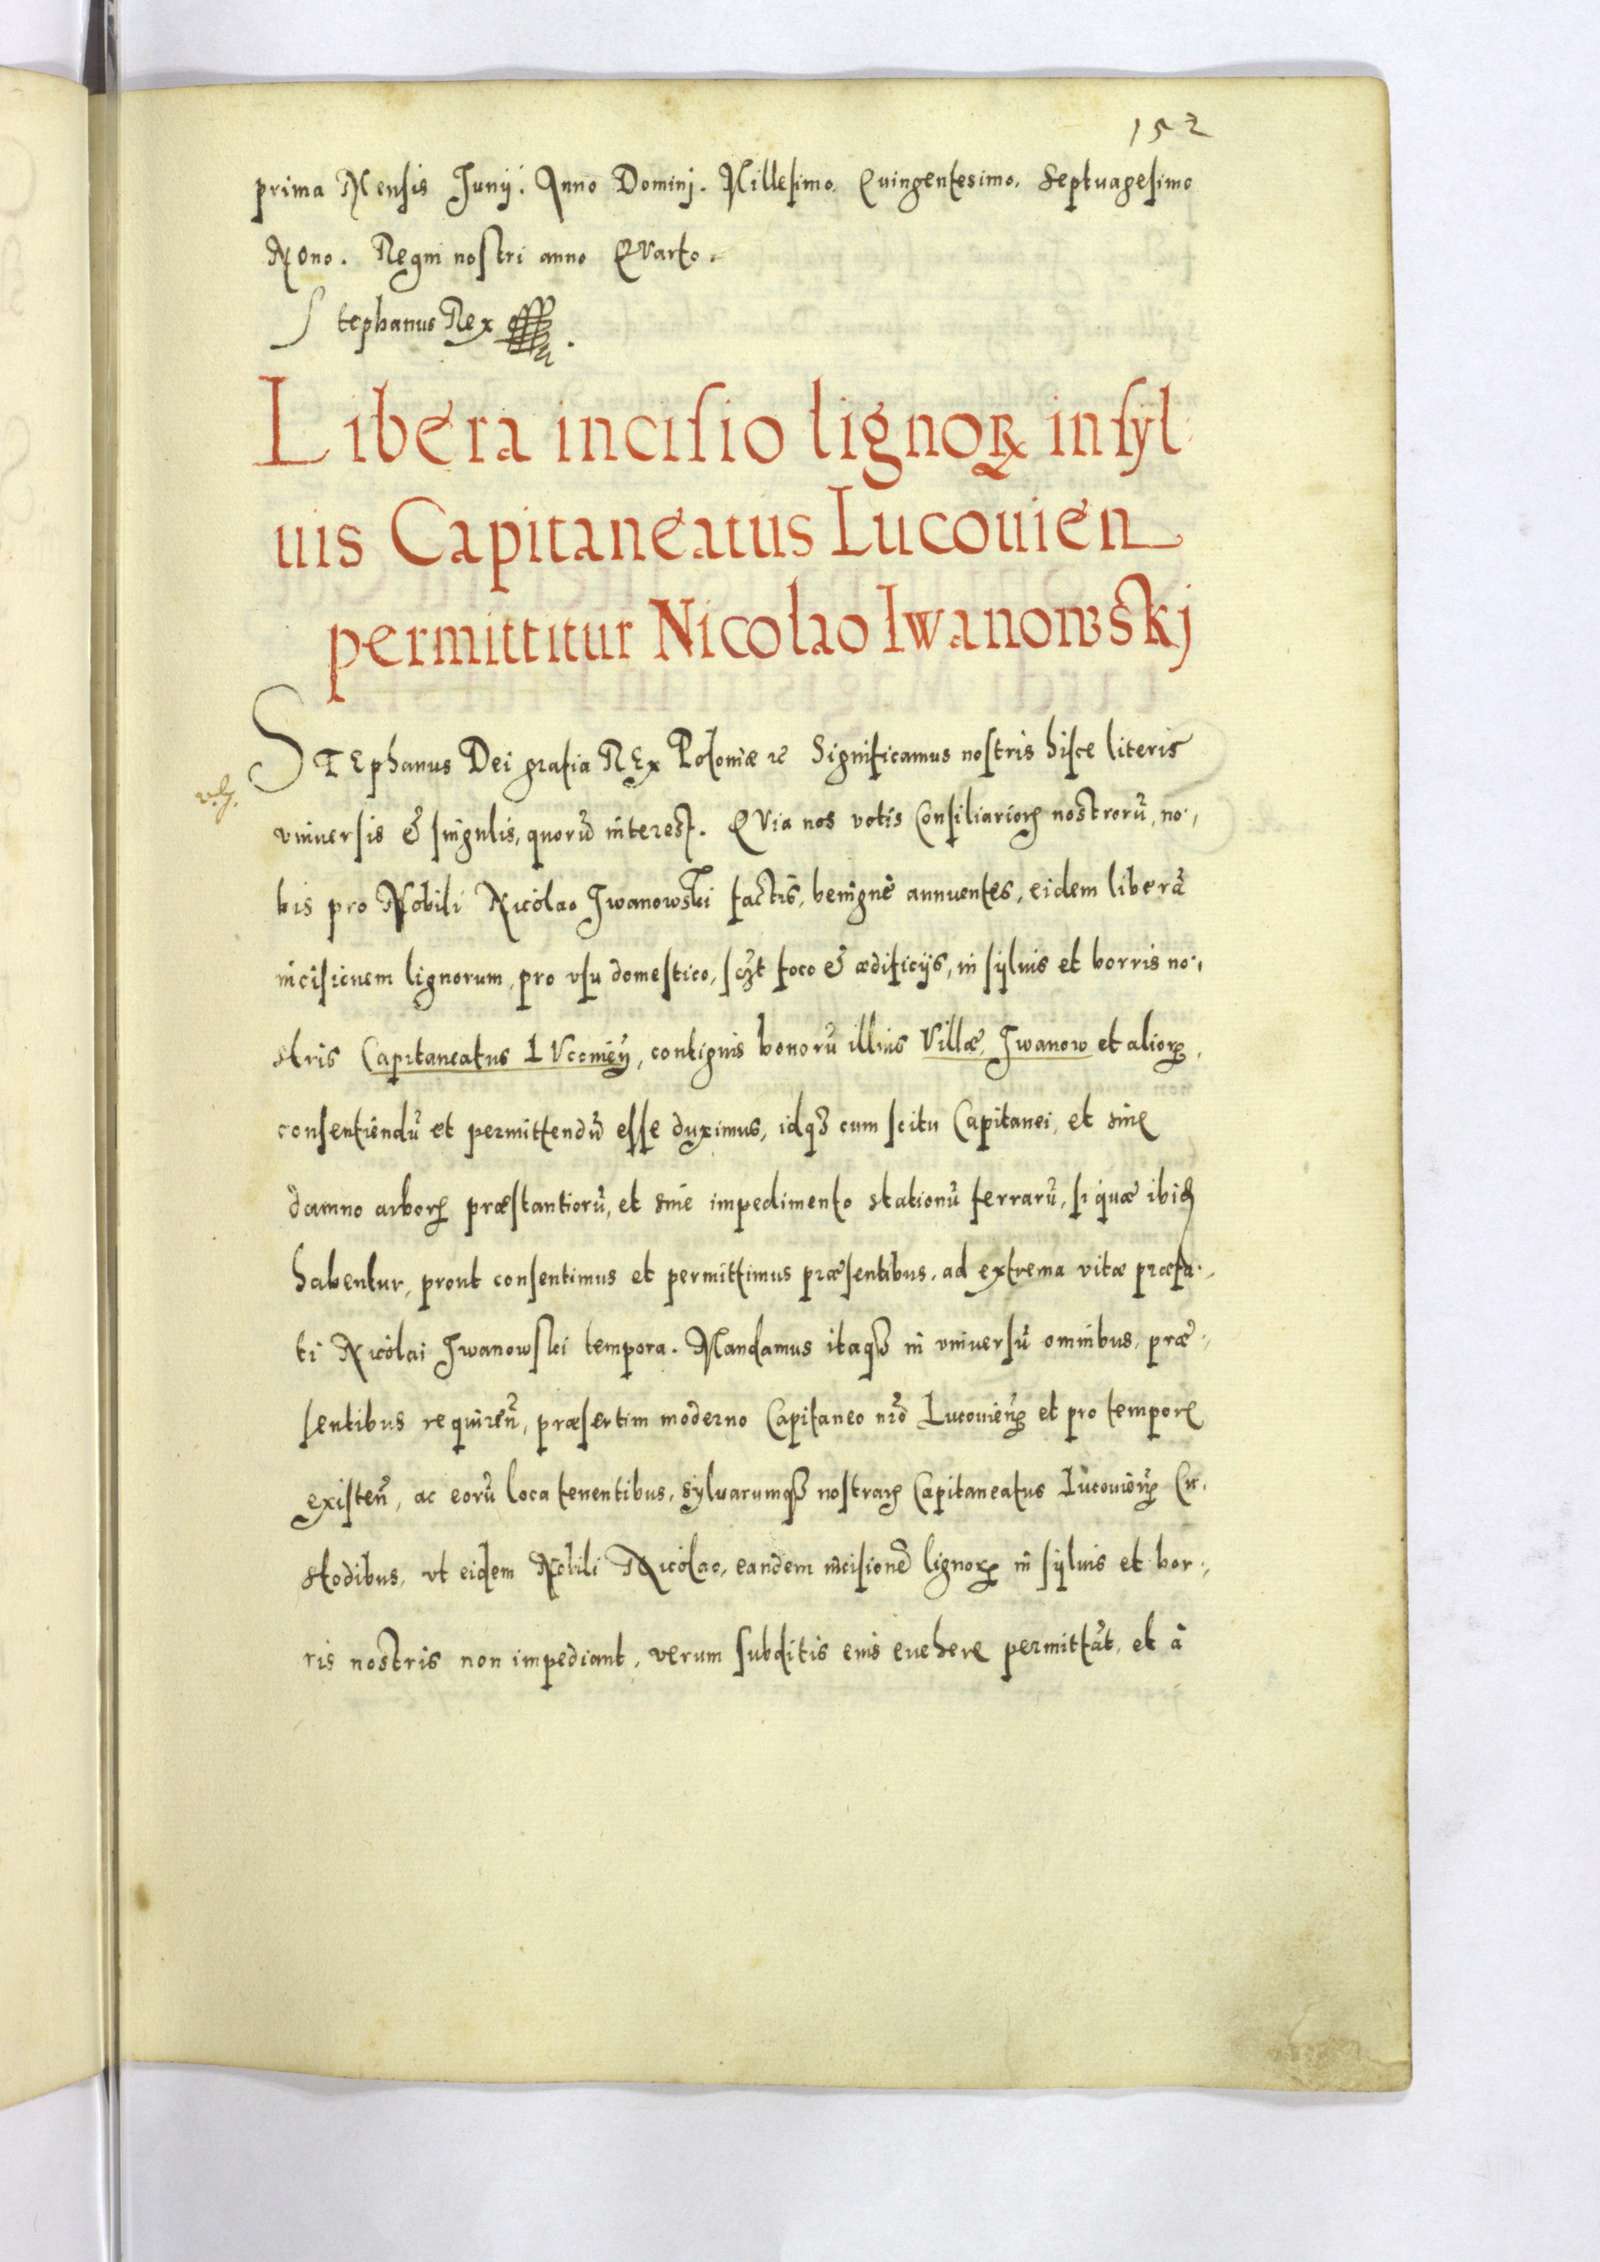 152
prima Mensis Junij. Anno Dominj. Millesimo. Quingentesimo. Septuagesimo
Nono. Regni nostri anno Quarto.
Stephanus Rex
Libera incisio lignorꝝ in syl
uis Capitaneatus Lucouien
permittitur Nicolao Iwanowskj
STEphanus Dei gratia REx Poloniæ ꝛc Significamus nostris hisce literis
vniuersis & singulis, quorū interest. QVia nos votis Consiliarioꝝ nostrorū, no,
bis pro Nobili Nicolao Iwanowski factis, benignè annuentes, eidem liberā
incisionem lignorum, pro vsu domestico, sczt foco & ædificijs, in syluis et borris no,
stris Capitaneatus LUcouień, contiguis bonorū illius Villæ, Iwanow et alioꝝ,
consentiendū et permittendū esse duximus, idqꝫ cum scitu Capitanei, et sine
damno arboꝝ præstantiorū, et sine impedimento stationū ferrarū, si quæ ibidē
habentur, prout consentimus et permittimus præsentibus, ad extrema vitæ præfa,
ti Nicolai Iwanowski tempora. Mandamus itaqꝫ in vniuersū omnibus, præ,
sentibus requireñ, præsertim moderno Capitaneo nrō Lucouieñ et pro tempore
existeñ, ac eorū loca tenentibus, syluarumqꝫ nostraꝝ Capitaneatus Lucouieñ Cu,
stodibus, vt eidem Nobili Nicolao, eandem incisionē lignoꝝ in syluis et bor,
ris nostris non impediant, verum subditis eius euehere permittāt, et à